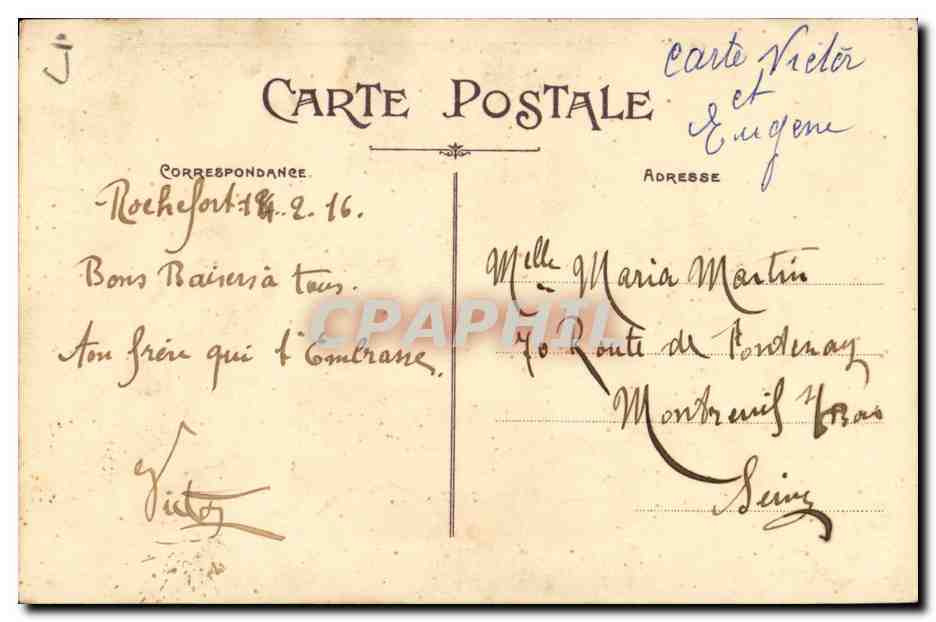 J
carte Victor
et
Eugene
CARTE POSTALE
CORRESPONDANCE
Rochefort. .2.16.
Bons Baisers à tous.
Ton frère qui t'Embrasse.
Victor
ADRESSE
Melle Maria Martin
70 Route de Fontenay
Montreuil s/Bois
Seine
CPAPHIL